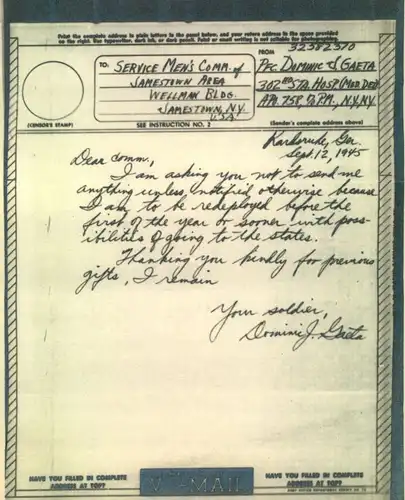 Print the complete address in plain letters in the panel below, and your return address in the space provided
on the right. Use typewriter, dark ink, or dark pencil. Faint or small writing is not suitable for photographing.
32382370
TO:
SERVICE MEN'S COMM. of
JAMESTOWN AREA
WELLMAN BLDG.
JAMESTOWN, N.Y.
U.S.A.
FROM
PFC. DOMINIC J. GAETA
302ND STA. HOSP.
APO 758, % P.M., N.Y., N.Y.
(CENSOR'S STAMP)
SEE INSTRUCTION NO. 2
(Sender's complete address above)
Karlsruhe, Ger.
Sept. 12, 1945
Dear Comm.,
I am asking you not to send me
anything unless notified otherwise because
I am to be redeployed before the
first of the year or sooner with poss-
ibilities of going to the states.
Thanking you kindly for previous
gifts, I remain
Your soldier,
Dominic J. Gaeta
HAVE YOU FILLED IN COMPLETE
ADDRESS AT TOP?
V - MAIL
HAVE YOU FILLED IN COMPLETE
ADDRESS AT TOP?